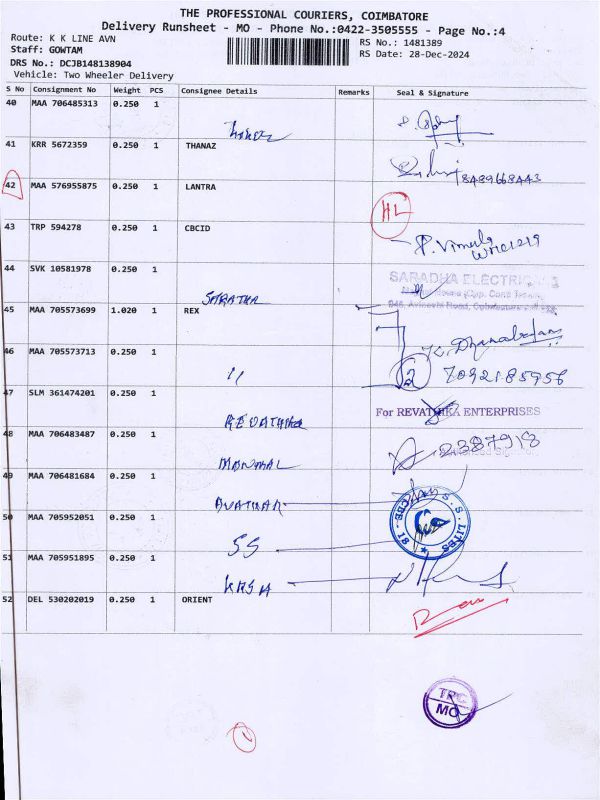 THE PROFESSIONAL COURIERS, COIMBATORE
Delivery Runsheet - MO - Phone No.:0422-3505555 - Page No.:4
Route: K K LINE AVN
RS No.: 1481389
Staff: GOWTAM
RS Date: 28-Dec-2024
DRS No.: DCJB148138904
Vehicle: Two Wheeler Delivery
S No Consignment No Weight PCS Consignee Details Remarks Seal & Signature
40 MAA 706485313 0.250 1
41 KRR 5672359 0.250 1 THANAZ
8489668443
42 MAA 576955875 0.250 1 LANTRA
HL
43 TRP 594278 0.250 1 CBCID
P. Vimala
44 SVK 10581978 0.250 1
SARATHA
SARADHA ELECTRIC
45 MAA 705573699 1.020 1 REX
K. Dhanabalan
46 MAA 705573713 0.250 1
11
2 7092185956
47 SLM 361474201 0.250 1
REVATHIKA
For REVATHIKA ENTERPRISES
48 MAA 706483487 0.250 1
2387918
49 MAA 706481684 0.250 1
50 MAA 705952051 0.250 1
SS
S.S. LITES
CBE-18
51 MAA 705951895 0.250 1
52 DEL 530202019 0.250 1 ORIENT
TPC
MO